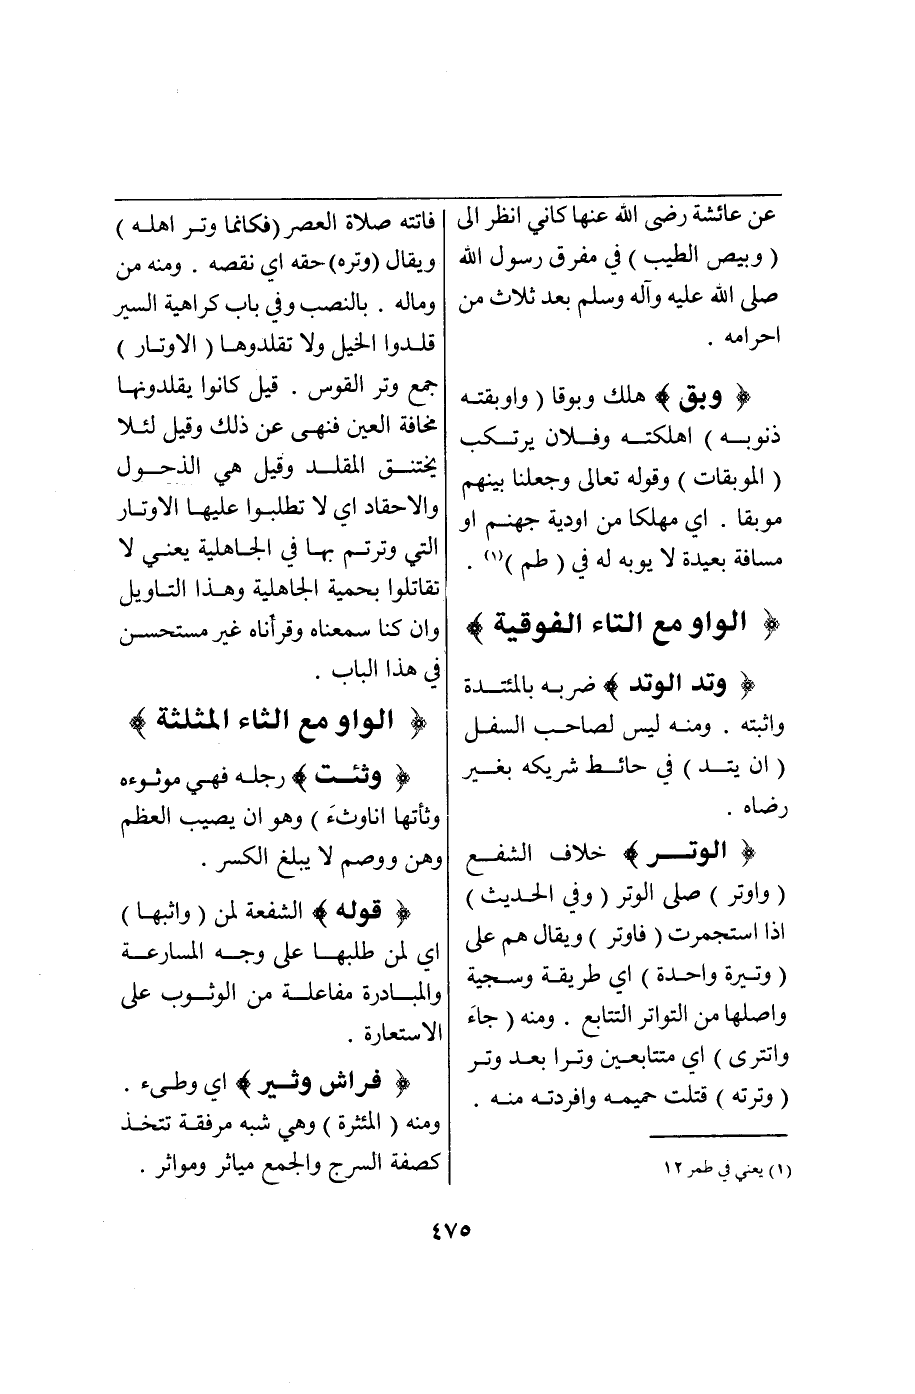 عن عائشة رضى الله عنها كاني انظر الى
( وبيص الطيب ) في مفرق رسول الله
صلى الله عليه وآله وسلم بعد ثلاث من
احرامه .
﴿ وبق ﴾ هلك وبوقا ( واوبقته
ذنوبه ) اهلكته وفلان يرتكب
( الموبقات ) وقوله تعالى وجعلنا بينهم
موبقا . اي مهلكا من اودية جهنم او
مسافة بعيدة لا يوبه له في ( طم )(١) .
﴿ الواو مع التاء الفوقية ﴾
﴿ وتد الوتد ﴾ ضربه بالمئتدة
واثبته . ومنه ليس لصاحب السفل
( ان يتد ) في حائط شريكه بغير
رضاه .
﴿ الوتر ﴾ خلاف الشفع
( واوتر ) صلى الوتر ( وفي الحديث )
اذا استجمرت ( فاوتر ) ويقال هم على
( وتيرة واحدة ) اي طريقة وسجية
واصلها من التواتر التتابع . ومنه ( جاءَ
واتترى ) اي متتابعين وترا بعد وتر
( وترته ) قتلت حميمه وافردته منه .
(١) يعني في طمر ١٢
فاتته صلاة العصر (فكانما وتر اهله )
ويقال (وتره) حقه اي نقصه . ومنه من
وماله . بالنصب وفي باب كراهية السير
قلدوا الخيل ولا تقلدوها ( الاوتار )
جمع وتر القوس . قيل كانوا يقلدونها
مخافة العين فنهى عن ذلك وقيل لئلا
يختنق المقلد وقيل هي الذحول
والاحقاد اي لا تطلبوا عليها الاوتار
التي وترتم بها في الجاهلية يعني لا
تقاتلوا بحمية الجاهلية وهذا التاويل
وان كنا سمعناه وقرأناه غير مستحسن
في هذا الباب .
﴿ الواو مع الثاء المثلثة ﴾
﴿ وثئت ﴾ رجله فهي موثوءه
وثأتها اناوثءَ ) وهو ان يصيب العظم
وهن ووصم لا يبلغ الكسر .
﴿ قوله ﴾ الشفعة لمن ( واثبها )
اي لمن طلبها على وجه المسارعة
والمبادرة مفاعلة من الوثوب على
الاستعارة .
﴿ فراش وثير ﴾ اي وطىء .
ومنه ( المئثرة ) وهي شبه مرفقة تتخذ
كصفة السرج والجمع مياثر ومواثر .
٤٧٥